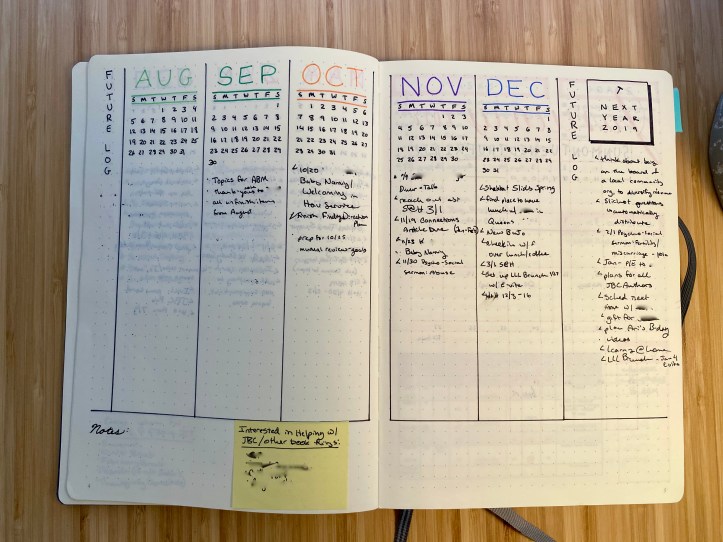 FUTURE LOG
AUG
S M T W T F S
1 2 3 4
5 6 7 8 9 10 11
12 13 14 15 16 17 18
19 20 21 22 23 24 25
26 27 28 29 30 31
SEP
S M T W T F S
1
2 3 4 5 6 7 8
9 10 11 12 13 14 15
16 17 18 19 20 21 22
23 24 25 26 27 28 29
30
Topics for ABM
thank yous to
all
from August
OCT
S M T W T F S
1 2 3 4 5 6
7 8 9 10 11 12 13
14 15 16 17 18 19 20
21 22 23 24 25 26 27
28 29 30 31
10/20
Baby Naming/
Welcoming in
Hav Service
Room
prep for 10/25
annual review-goals
Notes:
Interested in Helping w/
JBC/other book things:
NOV
S M T W T F S
1 2 3
4 5 6 7 8 9 10
11 12 13 14 15 16 17
18 19 20 21 22 23 24
25 26 27 28 29 30
reach out abt
SBH 3/1
11/19 Connections
Article Due (Jan-Feb)
11/23
Baby Naming
11/30 Psycho-Social
Sermon-Abuse
DEC
S M T W T F S
1
2 3 4 5 6 7 8
9 10 11 12 13 14 15
16 17 18 19 20 21 22
23 24 25 26 27 28 29
30 31
Shabbat Slides Spring
find place to have
lunch w/ in
Queens
New BuJo
check in w/
over lunch/coffee
3/1 SBH
Set up LLL Branch
w/ Evite
12/8-16
FUTURE LOG
NEXT
YEAR
2019
think about being
on the board of
a local community
org to diversify
automatically
distribute
2/1 Psycho-Social
Sermon-Fertility/
miscarriage
Jan-
plans for all
JBC Authors
Sched next
w/
gift for
plan Avi's Bday
videos
Learn2@
LLL Brunch-Jan 4